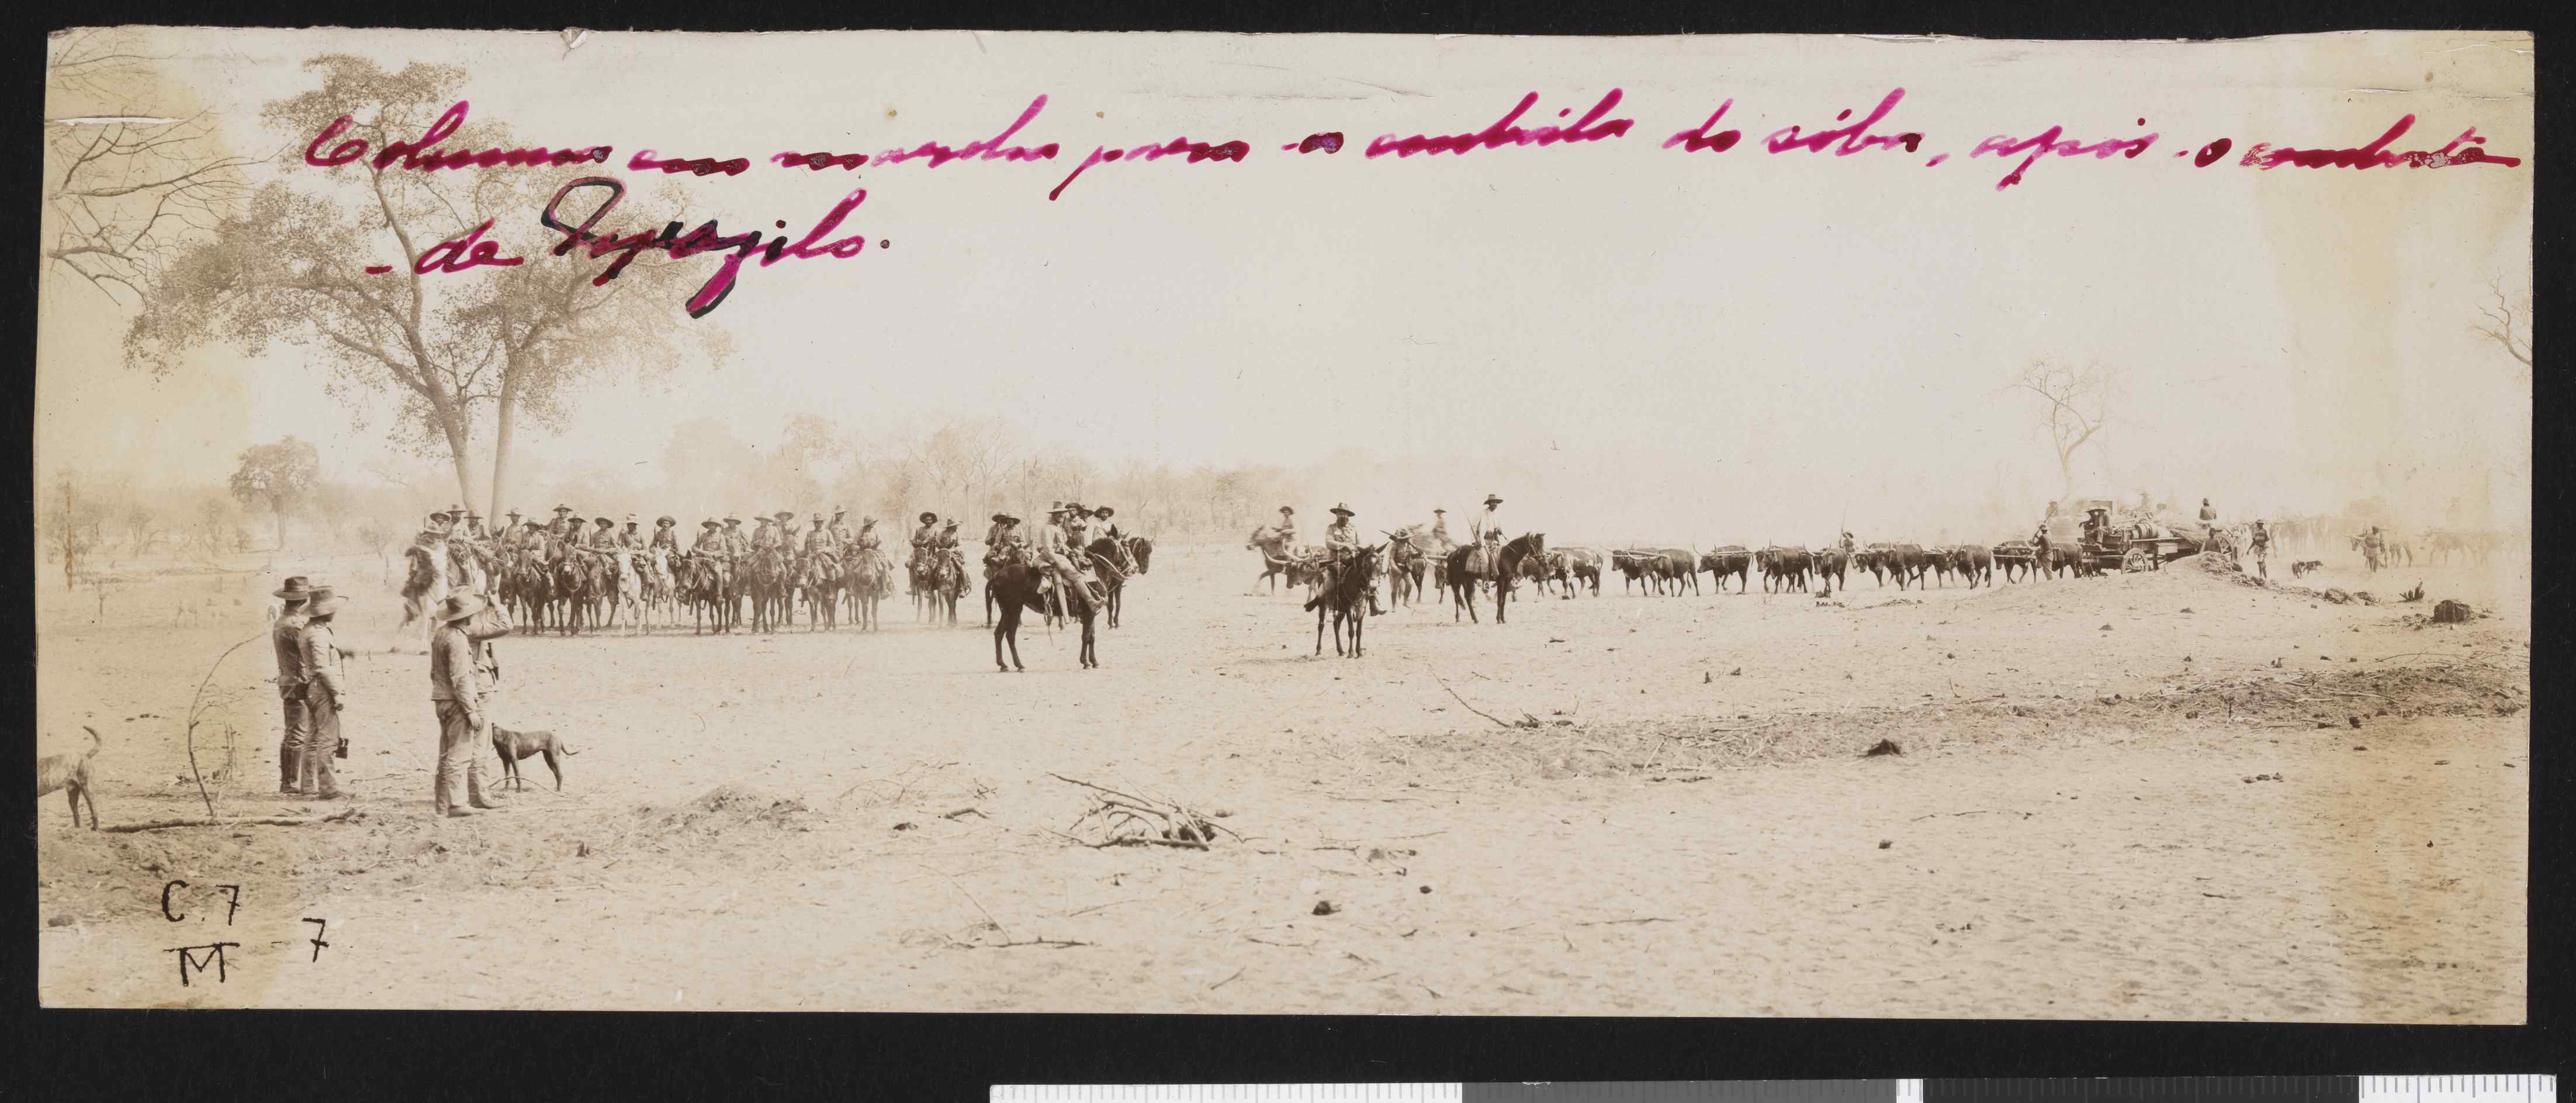 Columna em marcha para a embála do sóba, após o combate
- de
C. 7
M - 7